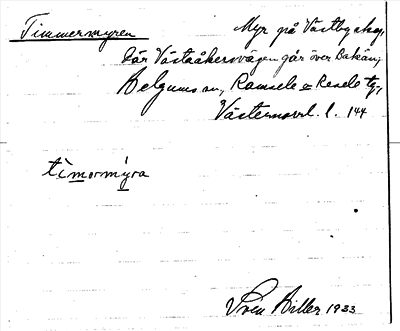 Timmermyren
Myr på Västbyskog,
där Väståkersvägen går över Bakån,
Helgums sn, Ramsele o Resele tg,
Västernorrl. l. 144
timormýra
Sven Hiller 1933